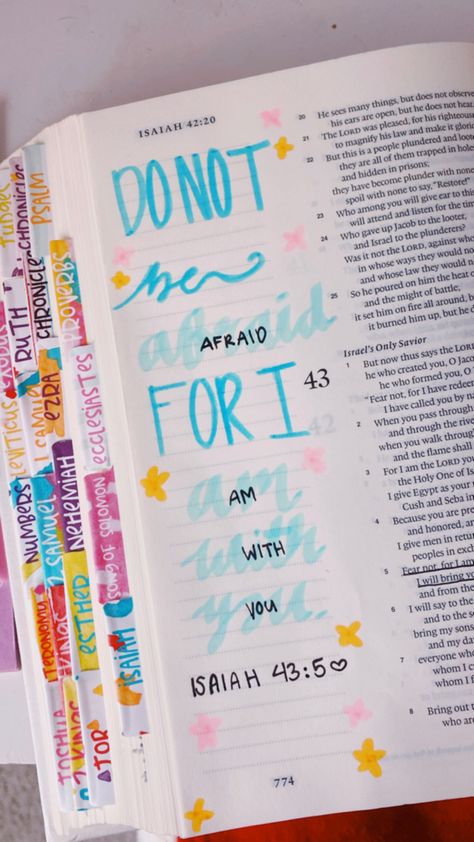 ISAIAH 42:20
DO NOT
be
afraid
AFRAID
FOR I
am
AM
with
WITH
you.
YOU
ISAIAH 43:5♡
774
20 He sees many things, but does not observe
his ears are open, but he does not hear.
21 The LORD was pleased, for his righteous
to magnify his law and make it glorio
22 But this is a people plundered and loote
they are all of them trapped in holes
and hidden in prisons;
they have become plunder with none
spoil with none to say, "Restore!"
23 Who among you will give ear to this
will attend and listen for the time
24 Who gave up Jacob to the looter,
and Israel to the plunderers?
Was it not the LORD, against who
in whose ways they would no
and whose law they would n
25 So he poured on him the heat
and the might of battle;
it set him on fire all around,
it burned him up, but he d
Israel's Only Savior
43
1 But now thus says the LORD
he who created you, O Jac
he who formed you, O
"Fear not, for I have redee
I have called you by na
2 When you pass through
and through the river
when you walk through
and the flame shall
3 For I am the LORD you
the Holy One of I
I give Egypt as your
Cush and Seba
4 Because you are pre
and honored, an
I give men in retur
peoples in exch
5 Fear not, for I am
I will bring
and from the
6 I will say to the
and to the s
bring my sons
and my da
7 everyone who
whom I c
whom I f
8 Bring out t
JUDGES
RUTH
CHRONICLES
PSALM
CHRONICLE
PROVERBS
EXODUS
LEVITICUS
1 SAMUEL
EZRA
ECCLESIASTES
NUMBERS
2 SAMUEL
NEHEMIAH
SONG OF SOLOMON
ESTHER
ISAIAH
KINGS
JOSHUA
2 KINGS